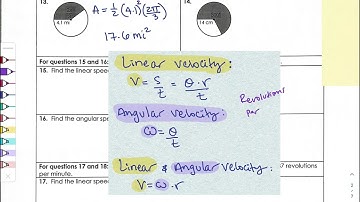 13.
A = ½ (4.1)² (2π/3)
17.6 mi²
4.1 mi
14.
14 cm
For questions 15 and 16:
15. Find the linear spee
16. Find the angular spe
For questions 17 and 18:
7 revolutions
per minute.
17. Find the linear spee
Linear velocity:
V = s/t = θ·r/t
Angular velocity:
ω = θ/t
Linear & Angular velocity:
V = ω · r
Revolutions
per